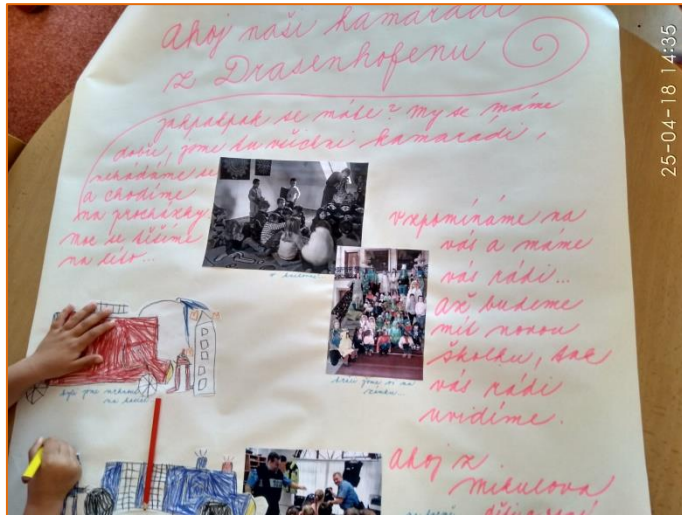 ahoj naši kamarádi
z Drasenhofenu
jakpakpak se máte? my se máme
dobře, jsme tu všichni kamarádi,
nehádáme se
a chodíme
na procházky
moc se těšíme
na léto...
vzpomínáme na
vás a máme
vás rádi...
až budeme
mít novou
školku, tak
vás rádi
uvidíme.
ahoj z
mikulova
25-04-18 14:35